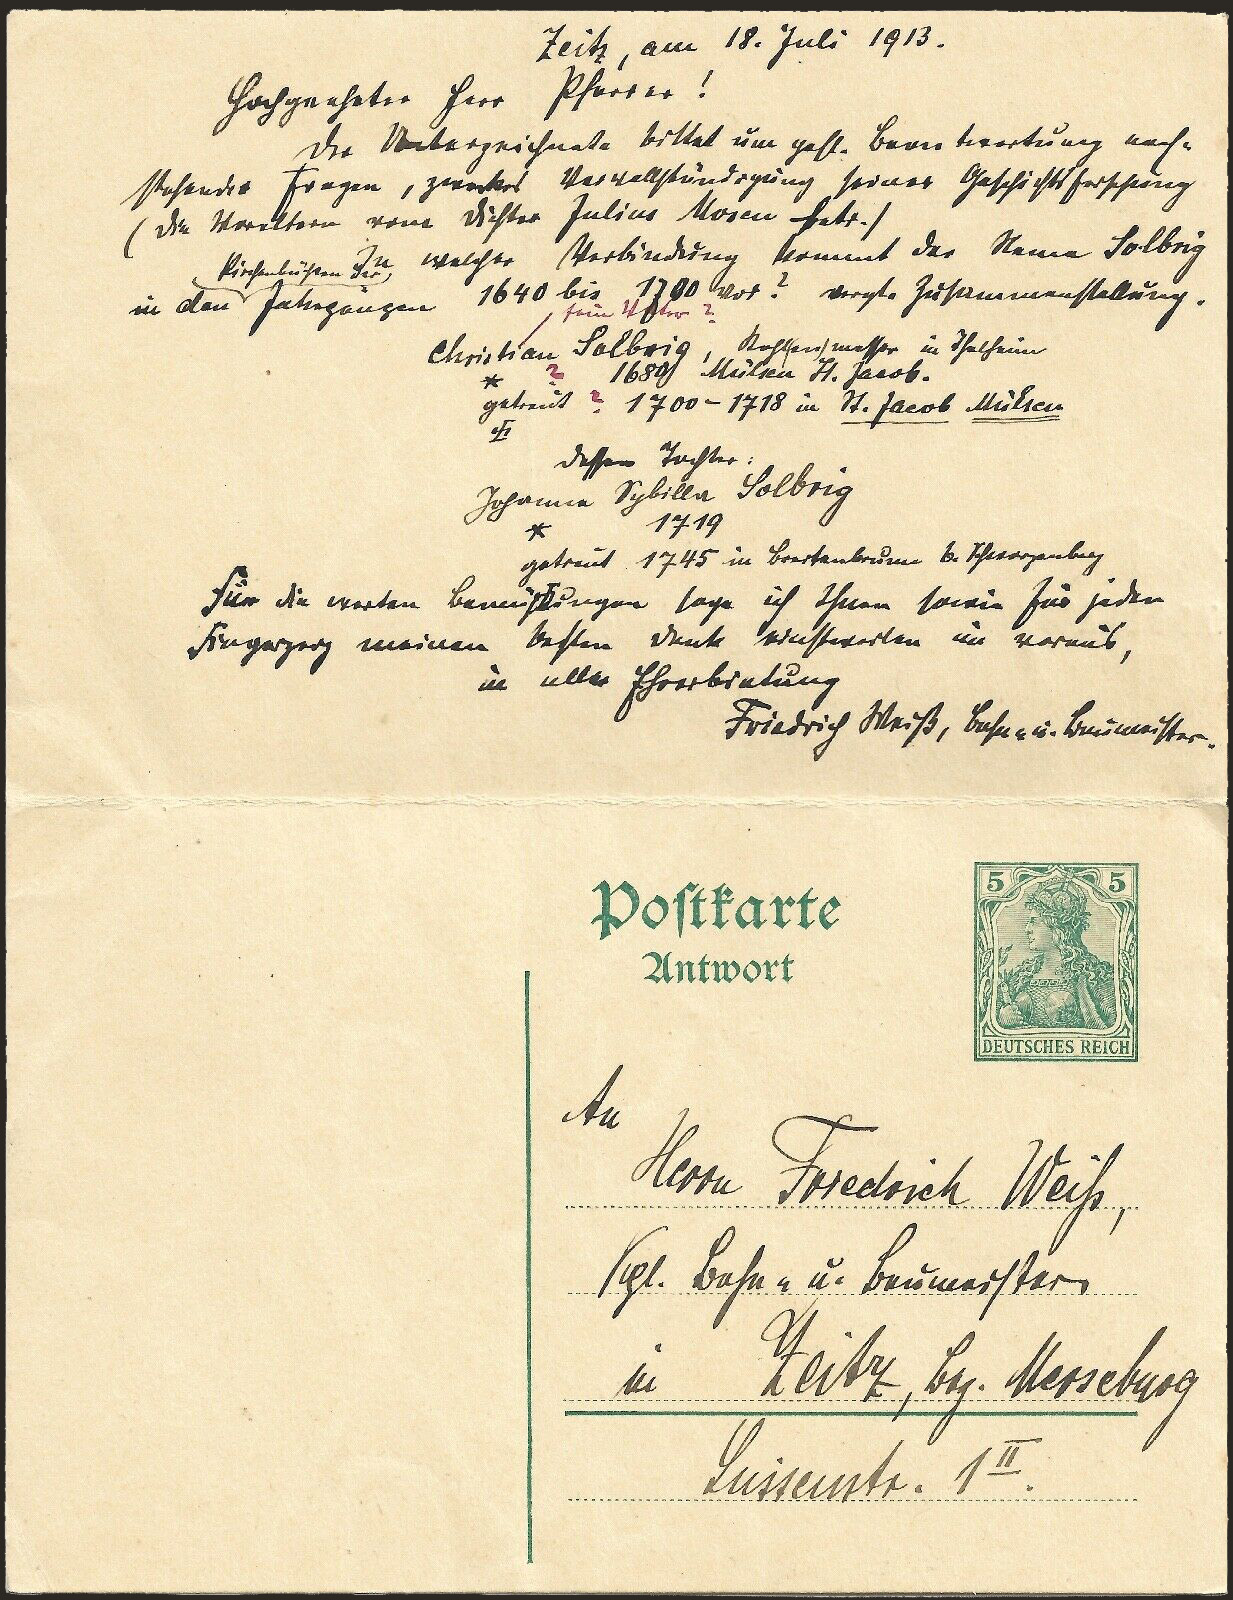 Zeitz, am 18. Juli 1913.
Hochgeehrter Herr Pfarrer!
Der Unterzeichnete bittet um gefl. Beantwortung nach-
stehender Fragen, zwecks Vervollständigung seiner Geschichtsforschung
(die Voreltern vom Dichter Julius Mosen betr.)
In welcher Verbindung kommt der Name Solbrig
Kirchenbüchern der
in den Jahrgängen 1640 bis 1700 vor? vergl. Zusammenstellung.
sein Vater?
Christian Solbrig, in Thalheim
* ? 1680 Mülsen St. Jacob.
getraut ? 1700-1718 in St. Jacob Mülsen
dessen Tochter:
Johanna Sybilla Solbrig
* 1719
getraut 1745 in Breitenbrunn b. Schwarzenberg
Für die werten Bemühungen sage ich Ihnen sowie für jeden
Fingerzeig meinen besten Dank einstweilen im voraus,
in aller Ehrerbietung
Friedrich Weiß, Bahn- u. Baumeister.
Postkarte
Antwort
5 5
DEUTSCHES REICH
An
Herrn Friedrich Weiß,
Kgl. Bahn- u. Baumeister
in Zeitz, Bez. Merseburg
Luisenstr. 1 II.